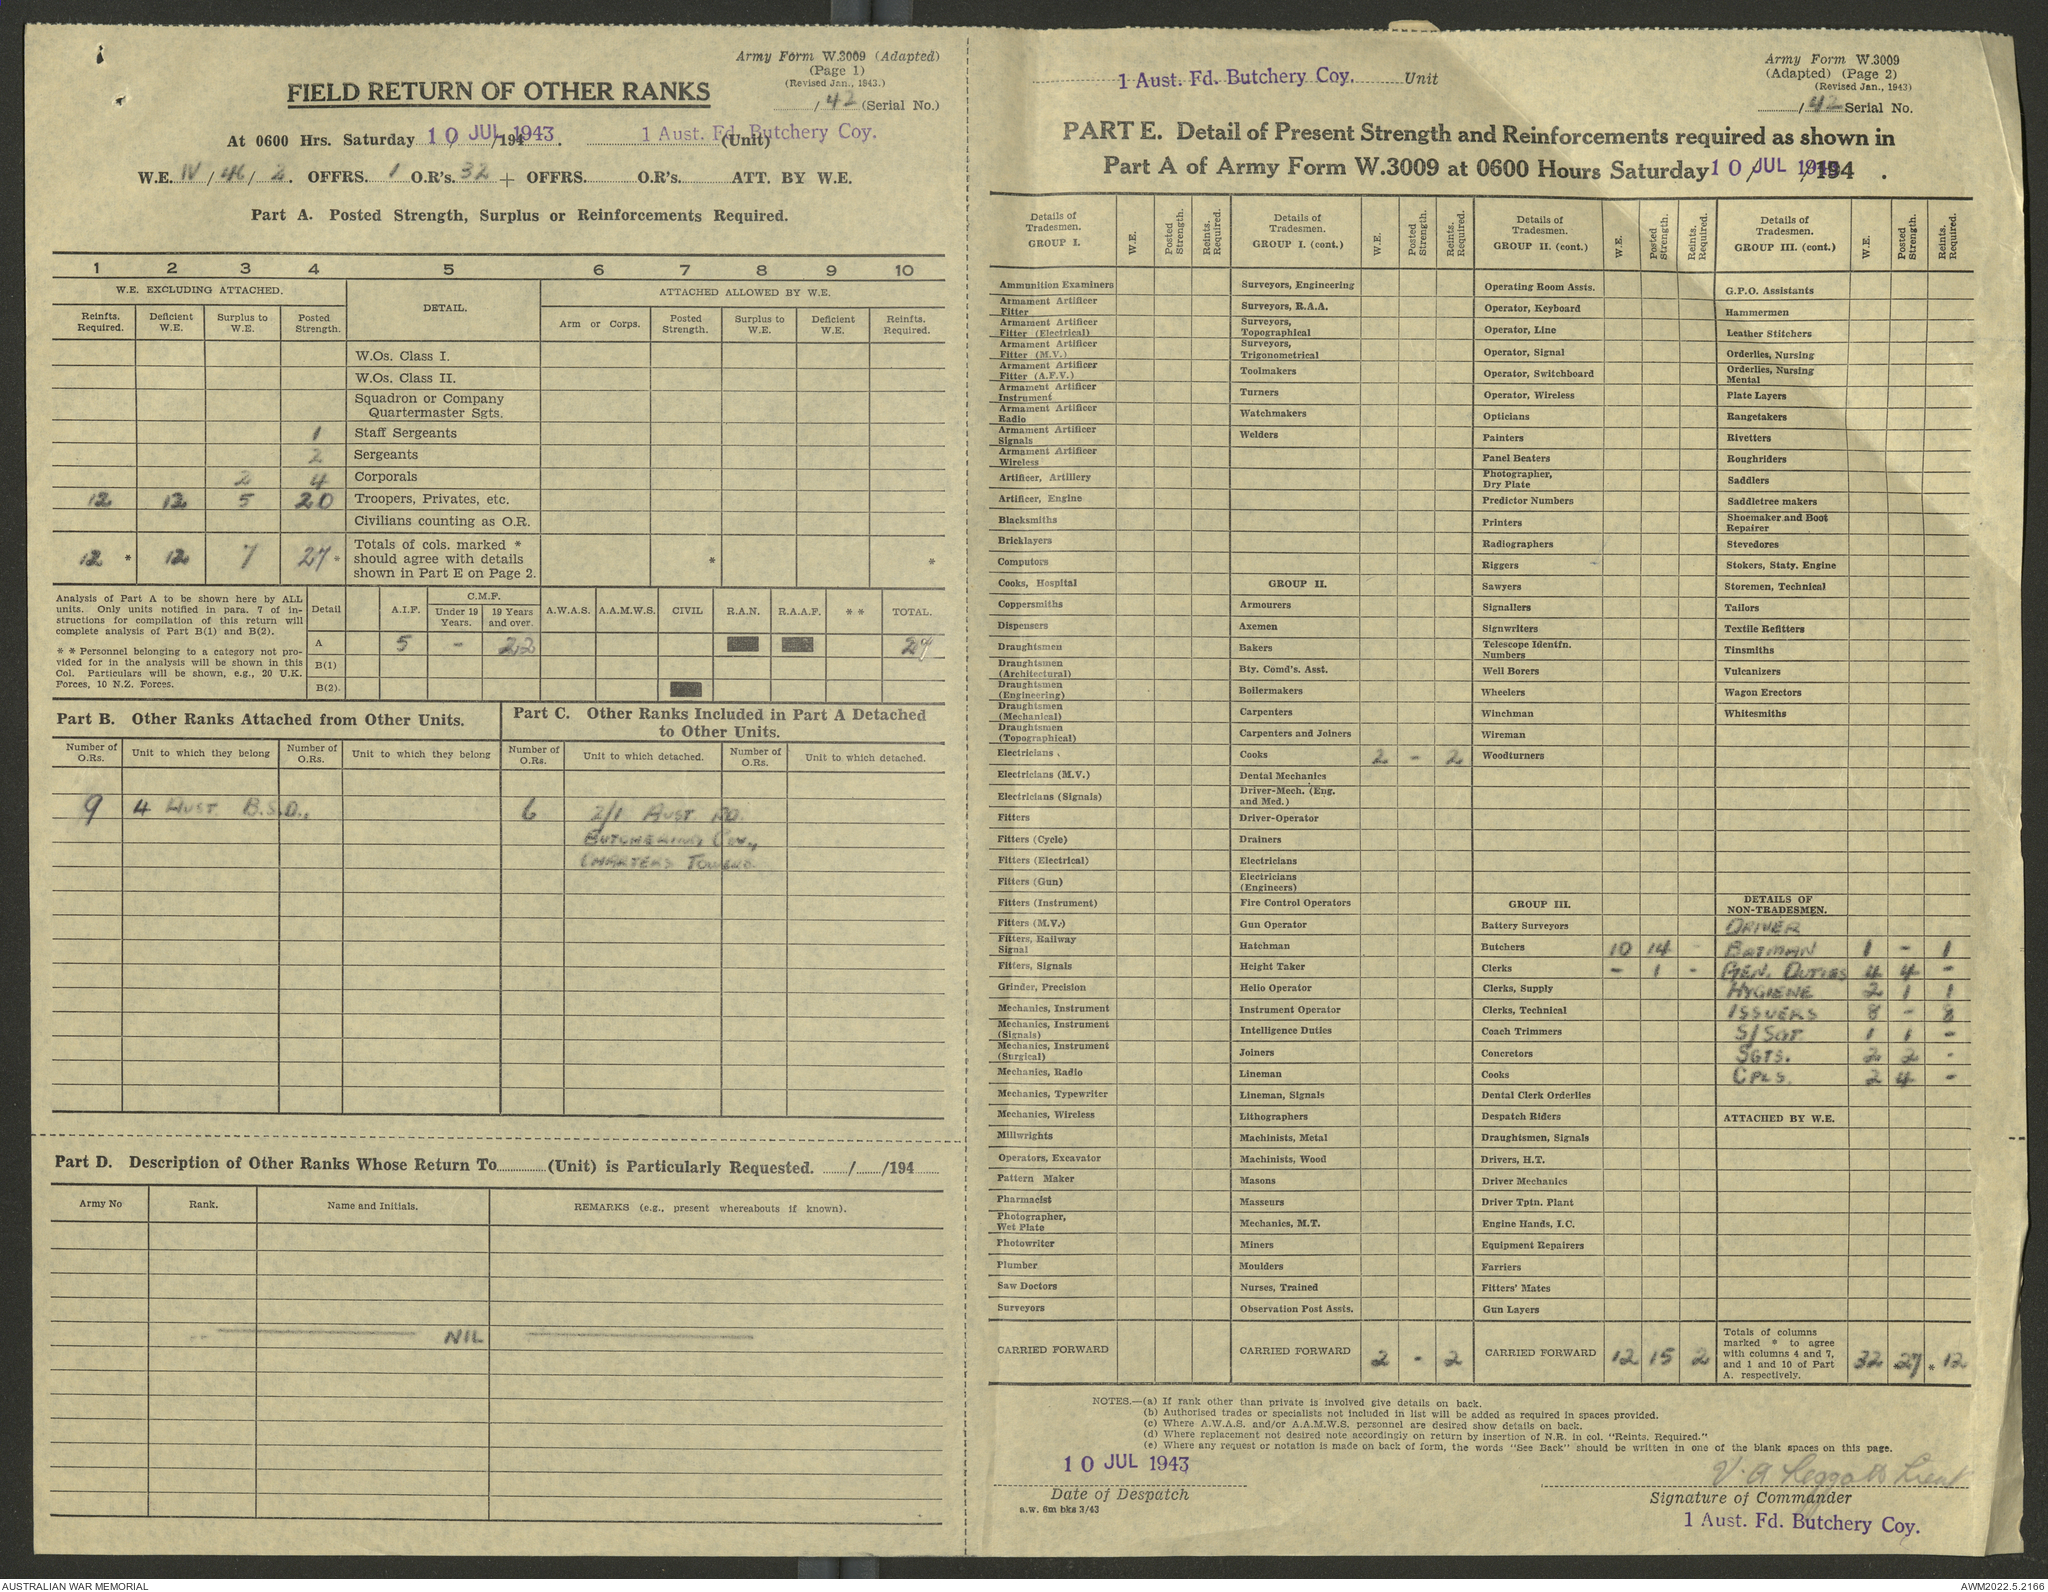 Army Form W.3009 (Adapted)
(Page 1)
(Revised Jan., 1943.)
FIELD RETURN OF OTHER RANKS
/ 42 (Serial No.)
At 0600 Hrs. Saturday 10 JUL 1943 /194 . 1 Aust. Fd. Butchery Coy. (Unit)
W.E. IV / 46 / 2. OFFRS. 1 O.R's. 32 + OFFRS. O.R's. ATT. BY W.E.
Part A. Posted Strength, Surplus or Reinforcements Required.
1 2 3 4 5 6 7 8 9 10
W.E. EXCLUDING ATTACHED. DETAIL. ATTACHED ALLOWED BY W.E.
Reinfts. Required. Deficient W.E. Surplus to W.E. Posted Strength. Arm or Corps. Posted Strength. Surplus to W.E. Deficient W.E. Reinfts. Required.
W.Os. Class I.
W.Os. Class II.
Squadron or Company
Quartermaster Sgts.
1 Staff Sergeants
2 Sergeants
2 4 Corporals
12 12 5 20 Troopers, Privates, etc.
Civilians counting as O.R.
12 * 12 7 27 * Totals of cols. marked * should agree with details shown in Part E on Page 2. * *
Analysis of Part A to be shown here by ALL
units. Only units notified in para. 7 of in-
structions for compilation of this return will
complete analysis of Part B(1) and B(2).
* * Personnel belonging to a category not pro-
vided for in the analysis will be shown in this
Col. Particulars will be shown, e.g., 20 U.K.
Forces, 10 N.Z. Forces.
Detail A.I.F. C.M.F. Under 19 Years. 19 Years and over. A.W.A.S. A.A.M.W.S. CIVIL R.A.N. R.A.A.F. * * TOTAL.
A 5 - 22 27
B(1)
B(2).
Part B. Other Ranks Attached from Other Units.
Part C. Other Ranks Included in Part A Detached
to Other Units.
Number of O.Rs. Unit to which they belong Number of O.Rs. Unit to which they belong Number of O.Rs. Unit to which detached. Number of O.Rs. Unit to which detached.
9 4 AUST B.S.D., 6 2/1 AUST FD.
BUTCHERING COY.,
CHARTERS TOWERS.
Part D. Description of Other Ranks Whose Return To (Unit) is Particularly Requested. / /194
Army No Rank. Name and Initials. REMARKS (e.g., present whereabouts if known).
NIL
1 Aust. Fd. Butchery Coy. Unit
Army Form W.3009
(Adapted) (Page 2)
(Revised Jan., 1943)
/ 42 Serial No.
PART E. Detail of Present Strength and Reinforcements required as shown in
Part A of Army Form W.3009 at 0600 Hours Saturday 10 JUL 1943 /194 .
Details of Tradesmen. GROUP I. W.E. Posted Strength. Reints. Required.
Ammunition Examiners
Armament Artificer Fitter
Armament Artificer Fitter (Electrical)
Armament Artificer Fitter (M.V.)
Armament Artificer Fitter (A.F.V.)
Armament Artificer Instrument
Armament Artificer Radio
Armament Artificer Signals
Armament Artificer Wireless
Artificer, Artillery
Artificer, Engine
Blacksmiths
Bricklayers
Computors
Cooks, Hospital
Coppersmiths
Dispensers
Draughtsmen
Draughtsmen (Architectural)
Draughtsmen (Engineering)
Draughtsmen (Mechanical)
Draughtsmen (Topographical)
Electricians
Electricians (M.V.)
Electricians (Signals)
Fitters
Fitters (Cycle)
Fitters (Electrical)
Fitters (Gun)
Fitters (Instrument)
Fitters (M.V.)
Fitters, Railway Signal
Fitters, Signals
Grinder, Precision
Mechanics, Instrument
Mechanics, Instrument (Signals)
Mechanics, Instrument (Surgical)
Mechanics, Radio
Mechanics, Typewriter
Mechanics, Wireless
Millwrights
Operators, Excavator
Pattern Maker
Pharmacist
Photographer, Wet Plate
Photowriter
Plumber
Saw Doctors
Surveyors
CARRIED FORWARD
Details of Tradesmen. GROUP I. (cont.) W.E. Posted Strength. Reints. Required.
Surveyors, Engineering
Surveyors, R.A.A.
Surveyors, Topographical
Surveyors, Trigonometrical
Toolmakers
Turners
Watchmakers
Welders
GROUP II.
Armourers
Axemen
Bakers
Bty. Comd's. Asst.
Boilermakers
Carpenters
Carpenters and Joiners
Cooks 2 - 2
Dental Mechanics
Driver-Mech. (Eng. and Med.)
Driver-Operator
Drainers
Electricians
Electricians (Engineers)
Fire Control Operators
Gun Operator
Hatchman
Height Taker
Helio Operator
Instrument Operator
Intelligence Duties
Joiners
Lineman
Lineman, Signals
Lithographers
Machinists, Metal
Machinists, Wood
Masons
Masseurs
Mechanics, M.T.
Miners
Moulders
Nurses, Trained
Observation Post Assts.
CARRIED FORWARD 2 - 2
Details of Tradesmen. GROUP II. (cont.) W.E. Posted Strength. Reints. Required.
Operating Room Assts.
Operator, Keyboard
Operator, Line
Operator, Signal
Operator, Switchboard
Operator, Wireless
Opticians
Painters
Panel Beaters
Photographer, Dry Plate
Predictor Numbers
Printers
Radiographers
Riggers
Sawyers
Signallers
Signwriters
Telescope Identfn. Numbers
Well Borers
Wheelers
Winchman
Wireman
Woodturners
GROUP III.
Battery Surveyors
Butchers 10 14 -
Clerks - 1 -
Clerks, Supply
Clerks, Technical
Coach Trimmers
Concretors
Cooks
Dental Clerk Orderlies
Despatch Riders
Draughtsmen, Signals
Drivers, H.T.
Driver Mechanics
Driver Tptn. Plant
Engine Hands, I.C.
Equipment Repairers
Farriers
Fitters' Mates
Gun Layers
CARRIED FORWARD 12 15 2
Details of Tradesmen. GROUP III. (cont.) W.E. Posted Strength. Reints Required.
G.P.O. Assistants
Hammermen
Leather Stitchers
Orderlies, Nursing
Orderlies, Nursing Mental
Plate Layers
Rangetakers
Rivetters
Roughriders
Saddlers
Saddletree makers
Shoemaker and Boot Repairer
Stevedores
Stokers, Staty. Engine
Storemen, Technical
Tailors
Textile Refitters
Tinsmiths
Vulcanizers
Wagon Erectors
Whitesmiths
DETAILS OF NON-TRADESMEN.
DRIVER
BATMAN 1 - 1
GEN. DUTIES 4 4 -
HYGIENE 2 1 1
ISSUERS 8 - 8
S/SGT 1 1 -
SGTS. 2 2 -
CPLS. 2 4 -
ATTACHED BY W.E.
Totals of columns marked * to agree with columns 4 and 7, and 1 and 10 of Part A. respectively. 32 *27 * 12
NOTES.—(a) If rank other than private is involved give details on back.
(b) Authorised trades or specialists not included in list will be added as required in spaces provided.
(c) Where A.W.A.S. and/or A.A.M.W.S. personnel are desired show details on back.
(d) Where replacement not desired note accordingly on return by insertion of N.R. in col. "Reints. Required."
(e) Where any request or notation is made on back of form, the words "See Back" should be written in one of the blank spaces on this page.
10 JUL 1943
Date of Despatch
a.w. 6m bks 3/43
V. A Leggatt Lieut
Signature of Commander
1 Aust. Fd. Butchery Coy.
AUSTRALIAN WAR MEMORIAL
AWM2022.5.2166